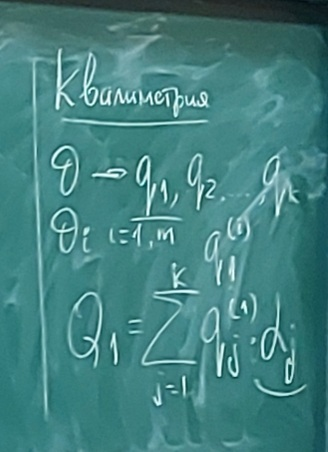 Квалиметрия
O → q₁, q₂, ..., qₖ
Oᵢ i=1,m q₁⁽ⁱ⁾
Q₁ = Σⱼ₌₁ᵏ qⱼ⁽¹⁾ · αⱼ